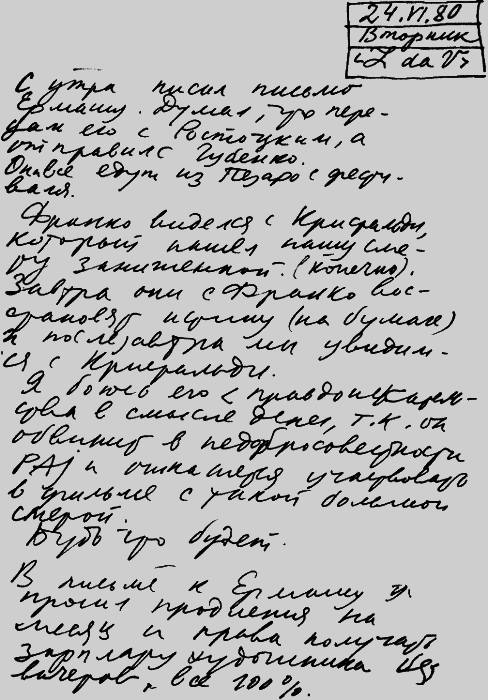 24.VI.80
Вторник
С утра писал письмо
Ермашу. Думал, что пере-
дам его с Ростоцким, а
отправил с Губенко.
Они все едут из Пезаро с фести-
валя.
Франко виделся с Кристальди,
который нашел нашу сме-
ту заниженной. (конечно).
Завтра они с Франко вос-
становят истину (на бумаге)
и послезавтра мы увидим-
ся с Кристальди.
Я боюсь его
в смысле денег, т.к. он
обвинит в недобросовестности
РАJ и откажется участвовать
в фильме с такой большой
сметой.
Будь что будет.
В письме к Ермашу я
просил продления на
месяц и права получать
зарплату художника без
вычетов, все 100%.